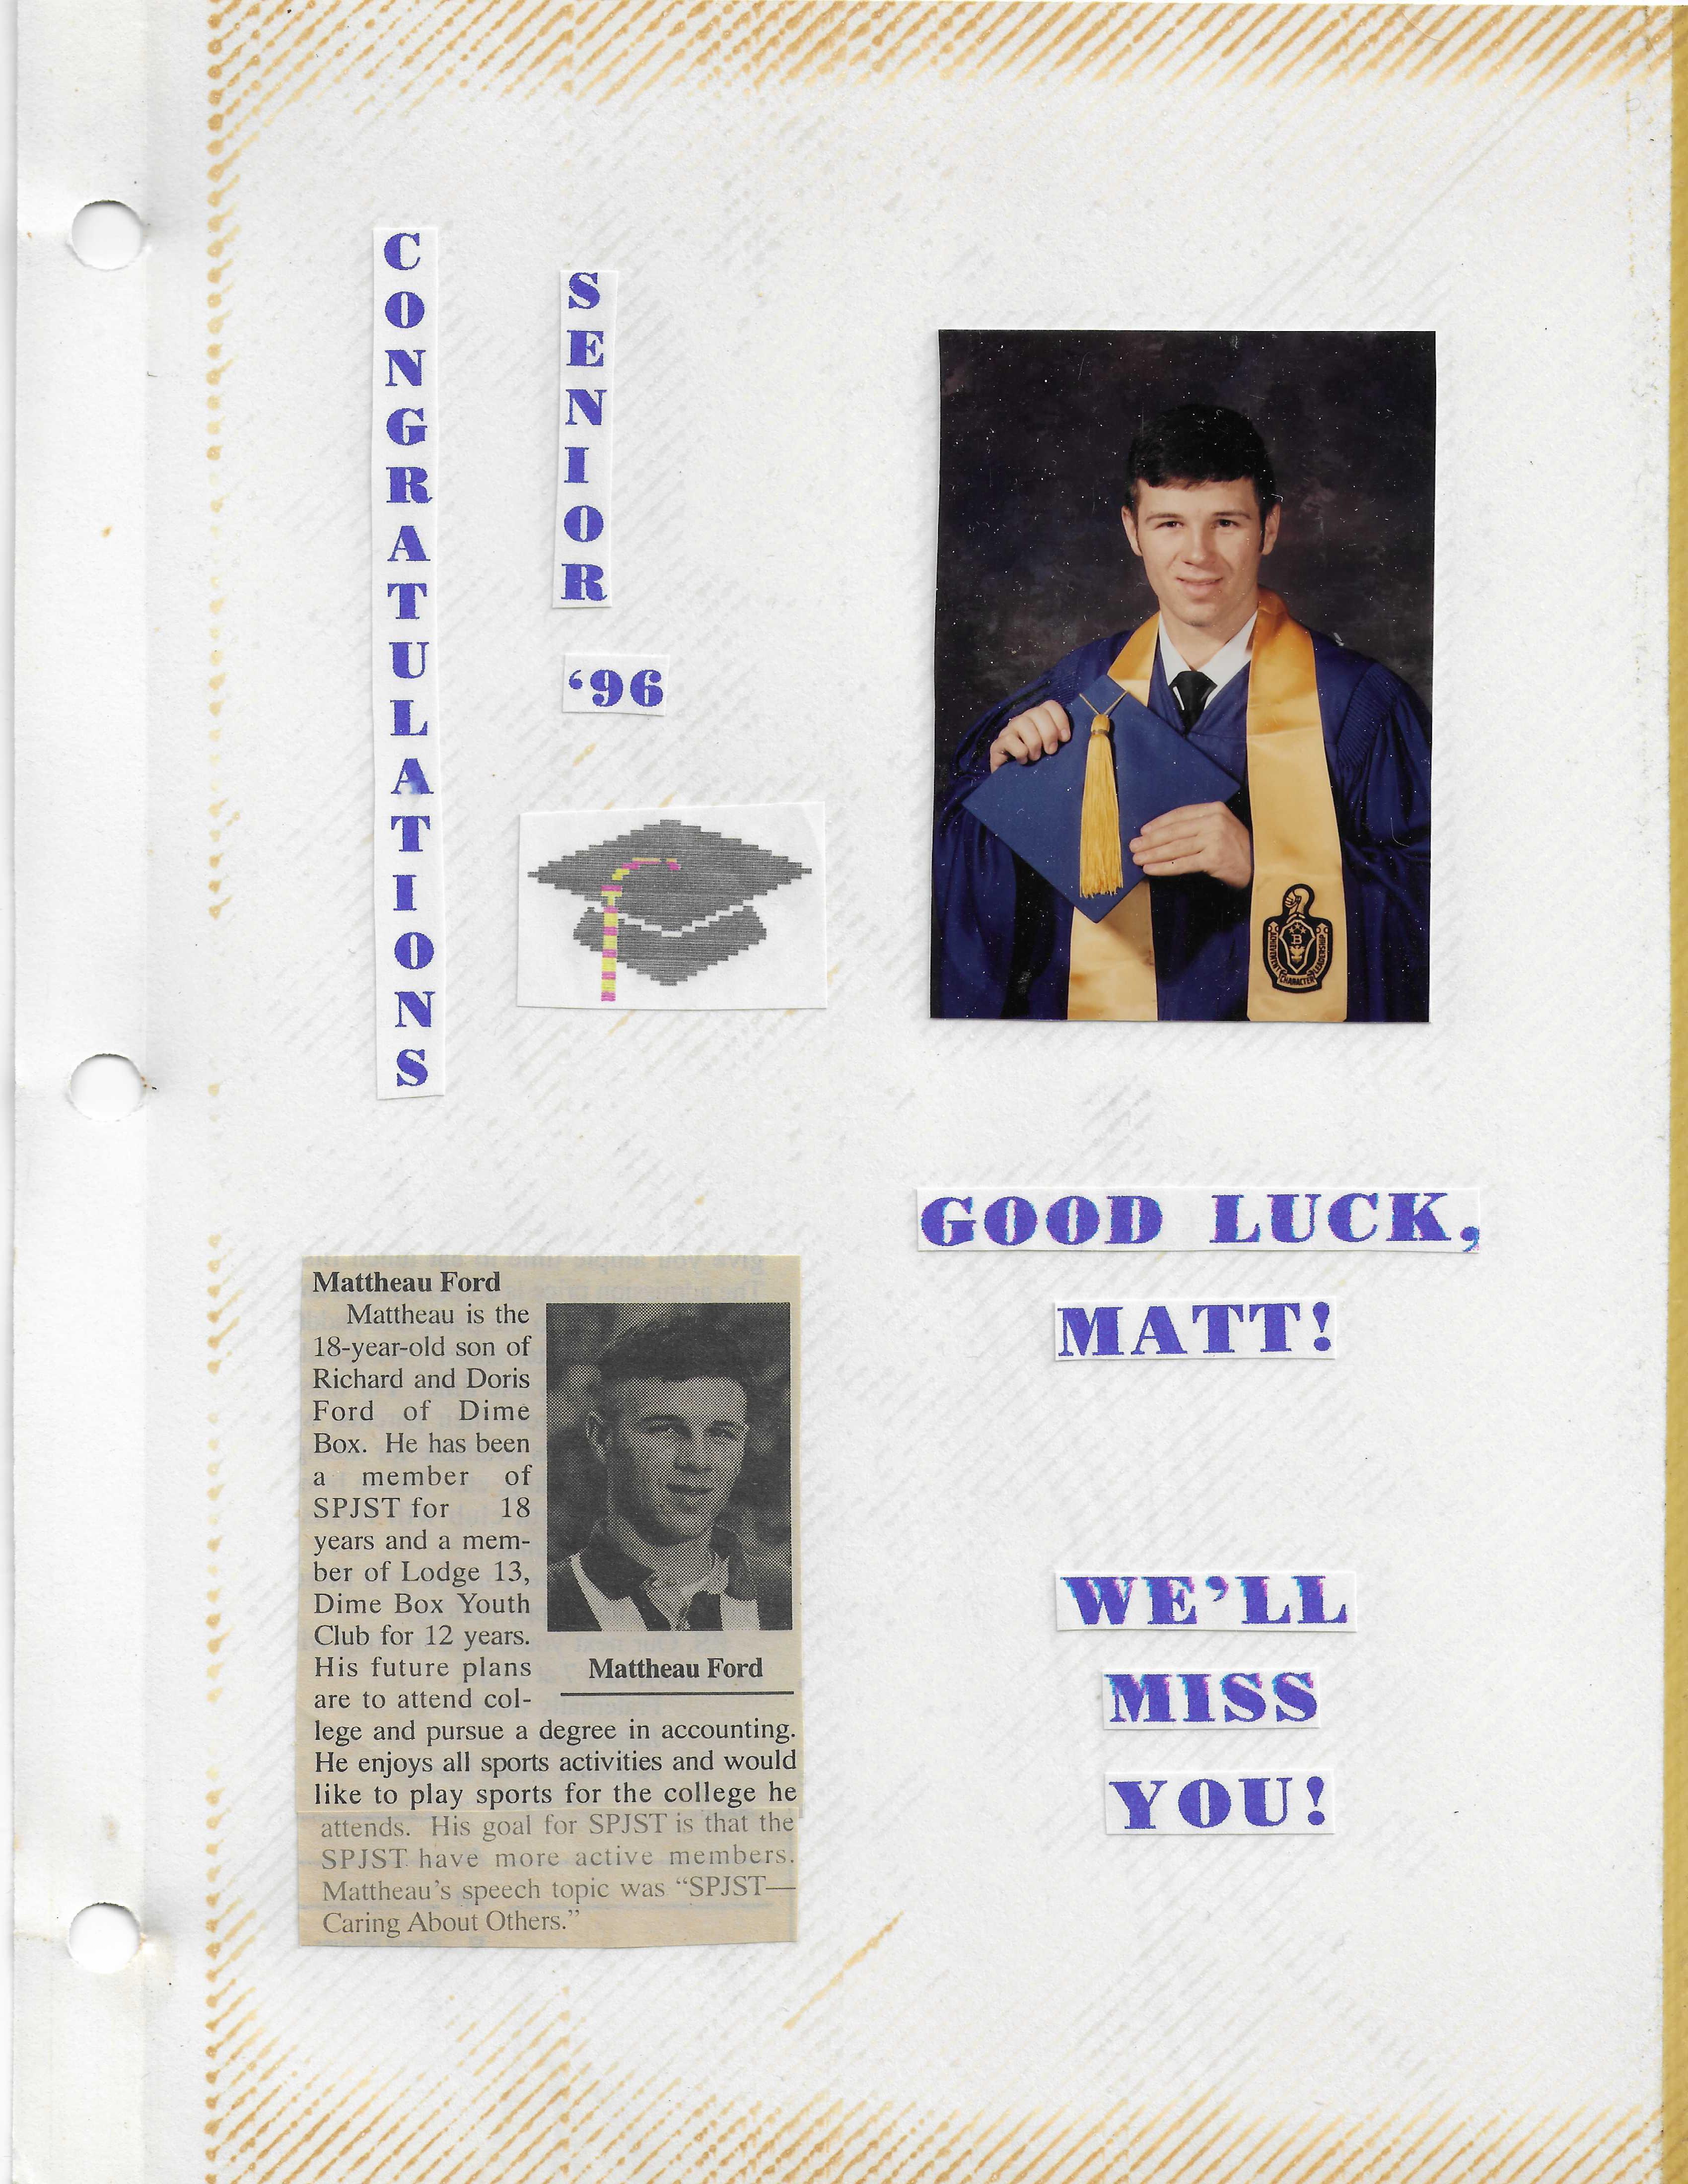 CONGRATULATIONS
SENIOR
‘96
B
ACHIEVEMENT
CHARACTER
LEADERSHIP
GOOD LUCK,
MATT!
Mattheau Ford
Mattheau is the
18-year-old son of
Richard and Doris
Ford of Dime
Box. He has been
a member of
SPJST for 18
years and a mem-
ber of Lodge 13,
Dime Box Youth
Club for 12 years.
His future plans
are to attend col-
lege and pursue a degree in accounting.
He enjoys all sports activities and would
like to play sports for the college he
attends. His goal for SPJST is that the
SPJST have more active members.
Mattheau’s speech topic was “SPJST—
Caring About Others.”
Mattheau Ford
WE’LL
MISS
YOU!